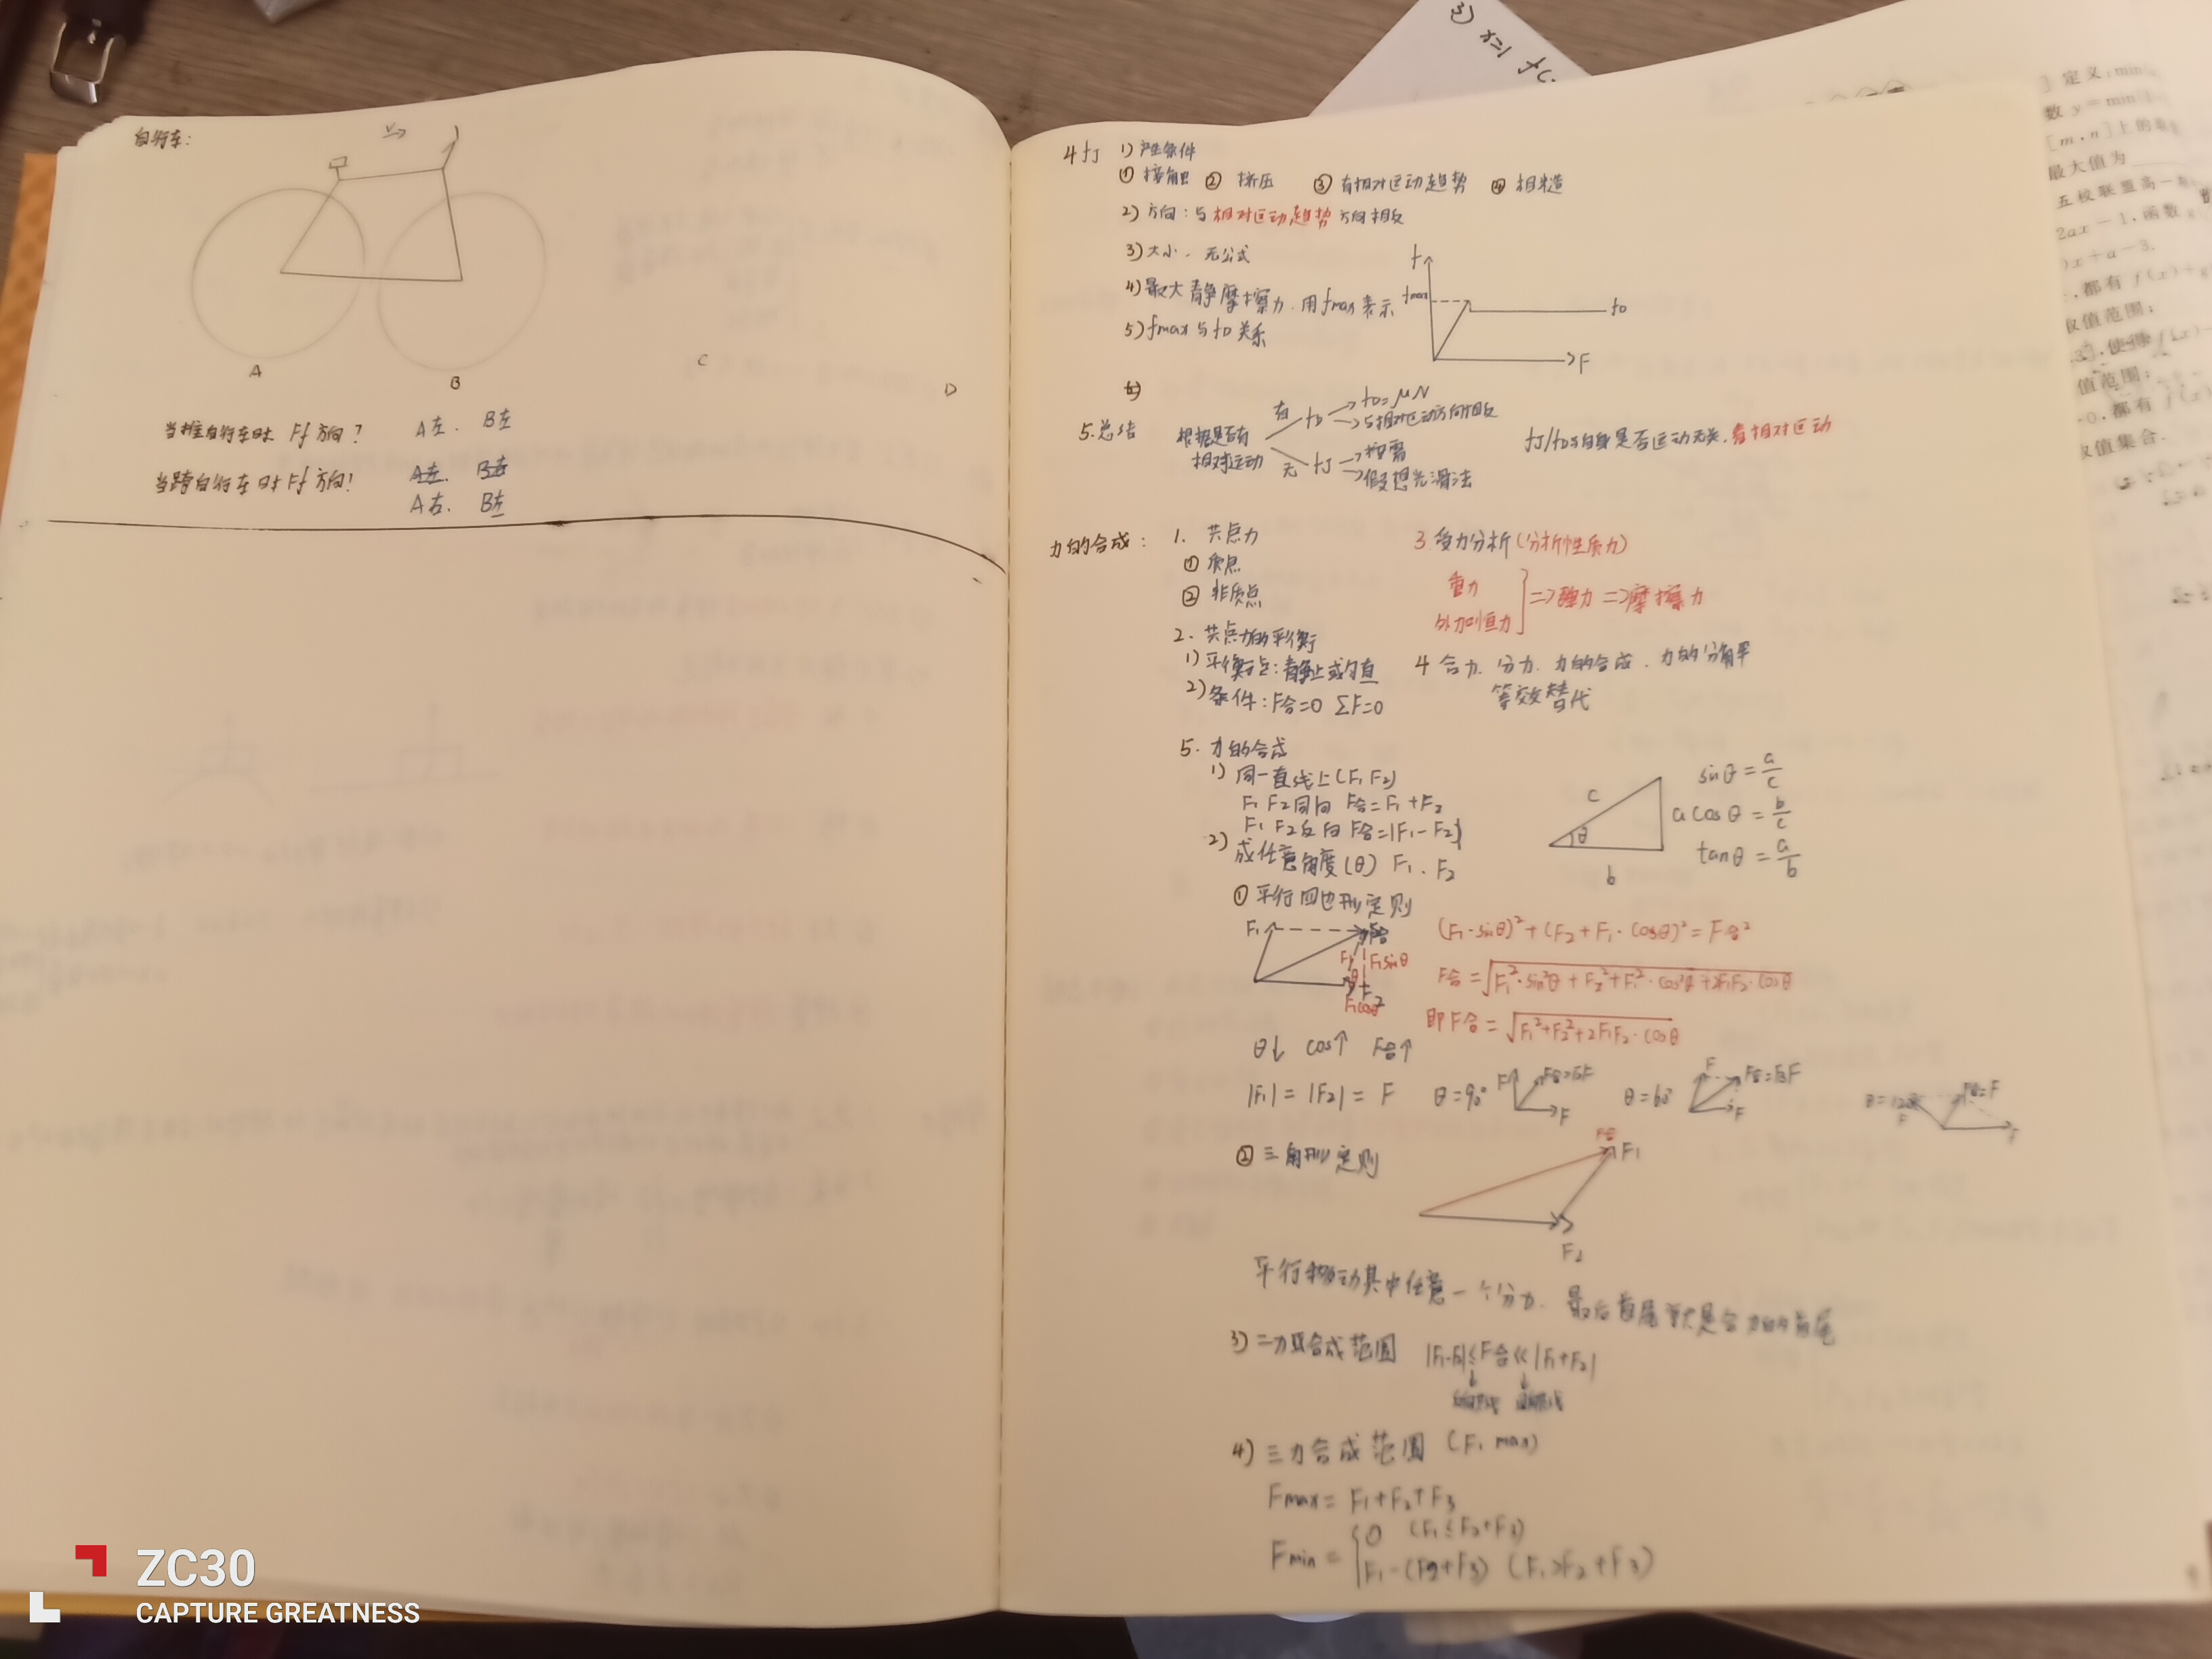 自行车:
v
A
B
C
D
当推自行车时 Ff方向? A左. B左
当蹬自行车时Ff方向! A左. B左
A右. B左
4 fJ 1) 产生条件
① 接触 ② 挤压 ③ 有相对运动趋势 ④ 粗糙
2) 方向:与相对运动趋势方向相反
3) 大小. 无公式
4) 最大静摩擦力. 用fmax表示
5) fmax与fD关系
f
fmax
fD
F
5.总结 根据是否有相对运动
有 fD → fD=μN
→ 与相对运动方向相反
无 fJ → 按需
→ 假想光滑法
fJ/fD与自身是否运动无关.看相对运动
力的合成: 1. 共点力
① 质点
② 非质点
2. 共点力的平衡
1) 平衡点:静止或匀直
2) 条件:F合=0 ΣF=0
3. 受力分析(分析性质力)
重力
外加恒力
=>弹力=>摩擦力
4 合力. 分力. 力的合成. 力的分解
等效替代
5. 力的合成
1) 同一直线上(F1 F2)
F1 F2同向 F合=F1+F2
F1 F2反向 F合=|F1-F2|
2) 成任意角度(θ) F1. F2
c
θ
a
b
sinθ=a/c
cosθ=b/c
tanθ=a/b
① 平行四边形定则
F1
F合
F1
F1sinθ
θ
F2
F1cosθ
(F1·sinθ)²+(F2+F1·cosθ)²=F合²
F合=√F1²·sin²θ+F2²+F1²·cos²θ+2F1F2·cosθ
即F合=√F1²+F2²+2F1F2·cosθ
θ↓ cos↑ F合↑
|F1|=|F2|=F θ=90° F F合=√2F F θ=60° F F合=√3F F θ=120° F F合=F F
② 三角形定则
F合
F1
F2
平行移动其中任意一个分力. 最后首尾就是合力的首尾
3) 二力合成范围 |F1-F2|≤F合≤|F1+F2|
4) 三力合成范围 (F1 max)
Fmax=F1+F2+F3
Fmin={0 (F1≤F2+F3)
F1-(F2+F3) (F1>F2+F3)
3) x=1 f(
] 定义:min
数 y=min{
[m,n]上的
最大值为
五校联盟高一
2ax-1,函数
)x+a-3.
,都有 f(x)+g
取值范围;
3],使得 f(x)
值范围;
0,都有 f(x)
取值集合.
ZC30
CAPTURE GREATNESS